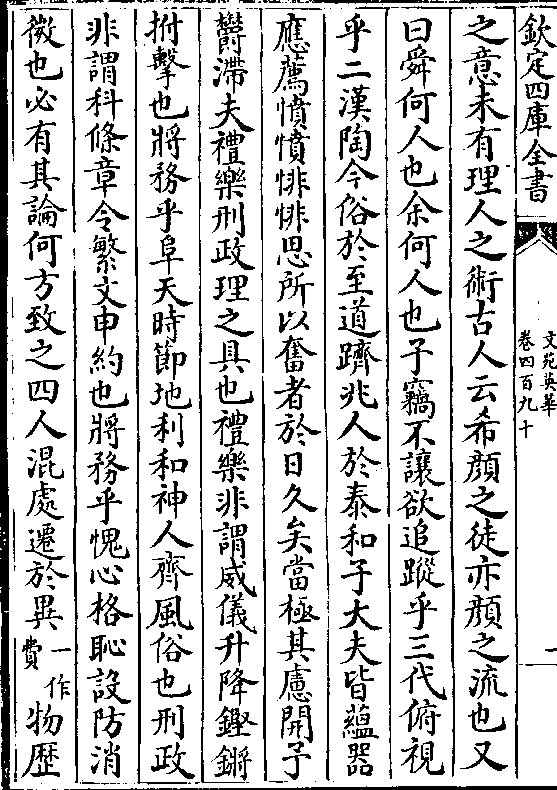 欽定四庫全書
文苑英華
卷四百九十
一
之意未有理人之術古人云希顔之徒亦顔之流也又
曰舜何人也余何人也予竊不讓欲追蹤乎三代俯視
乎二漢陶今俗於至道躋兆人於泰和子大夫皆藴器
應薦憤憤悱悱思所以奮者於日久矣當極其慮開予
欝滯夫禮樂刑政理之具也禮樂非謂威儀升降鏗鏘
拊擊也將務乎阜天時節地利和神人齊風俗也刑政
非謂科條章令繁文申約也將務乎愧心格恥設防消
微也必有其論何方致之四人混處遷於異一作費物歴